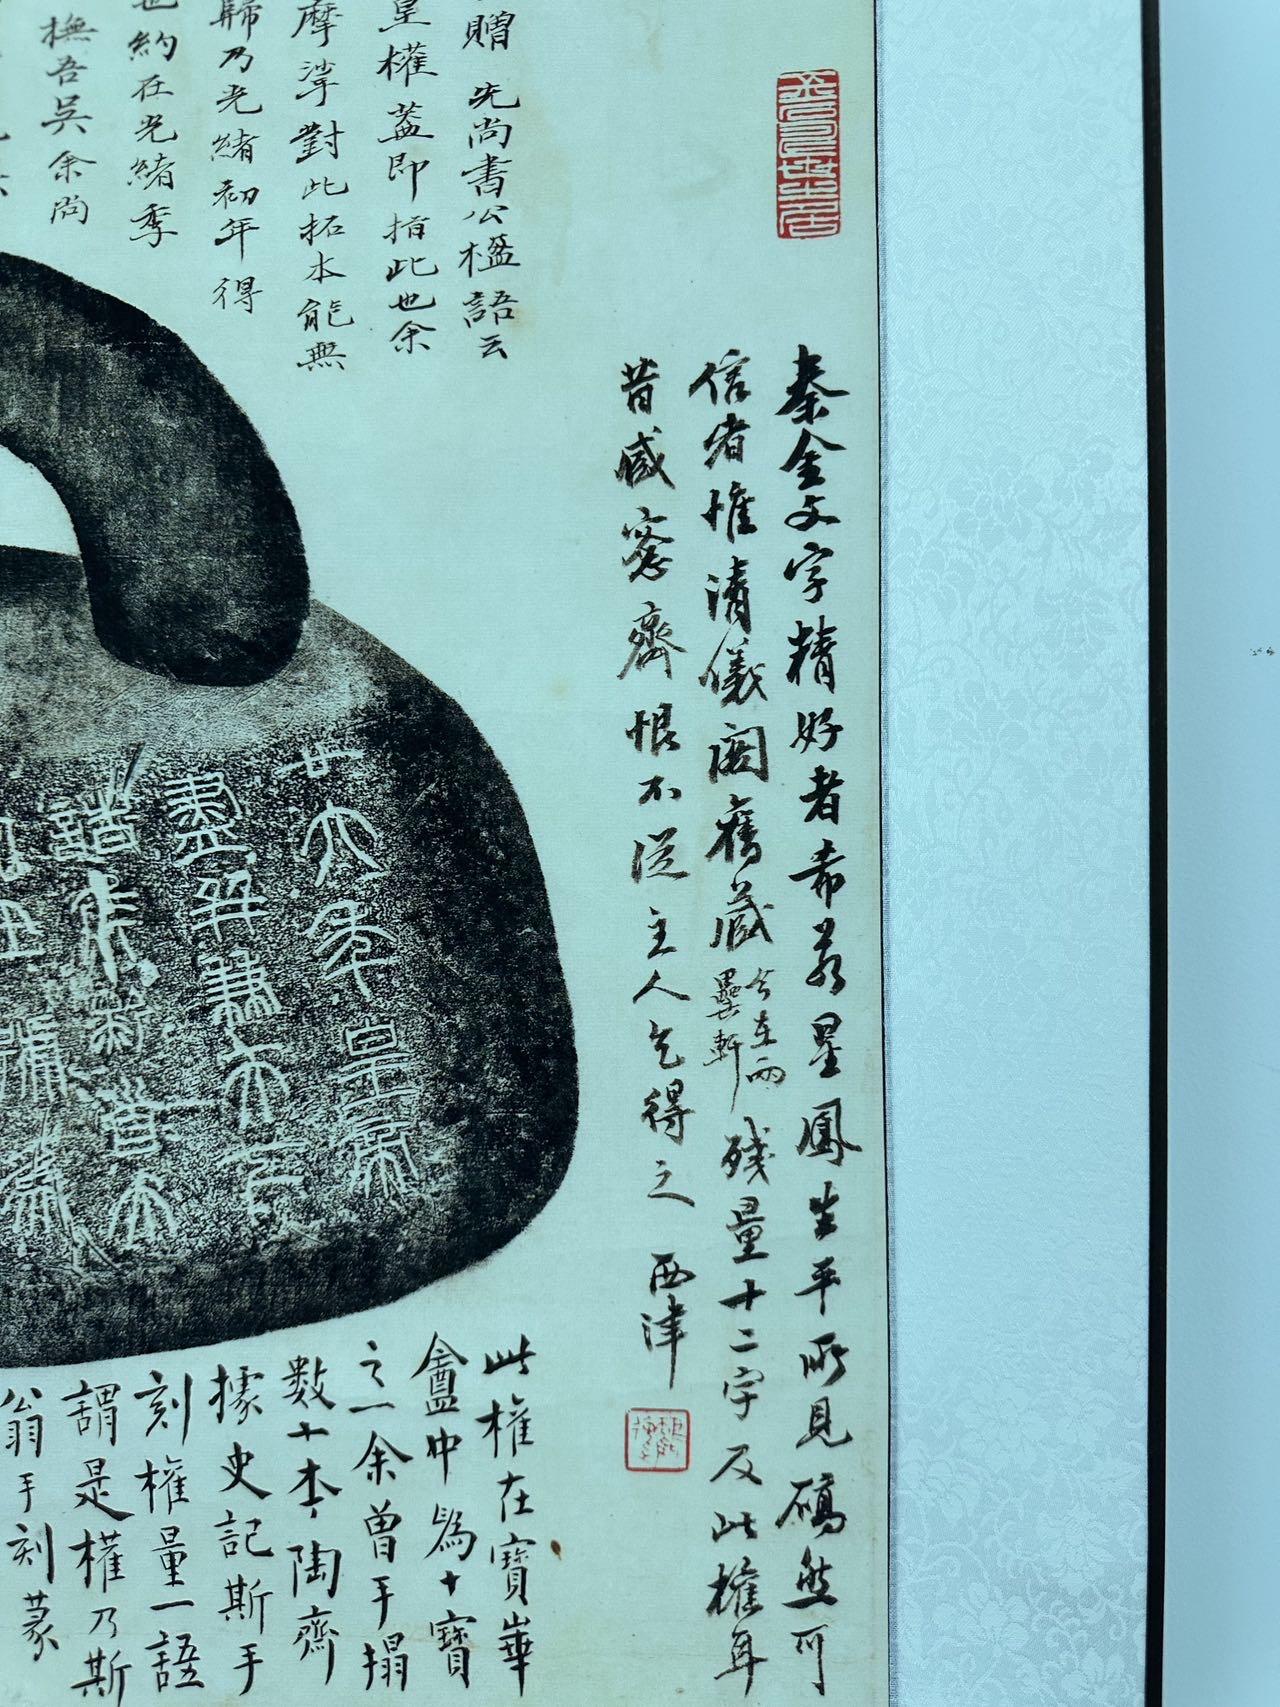 秦金文字精好者希若星鳳生平所見礭然可
信者惟清儀閣舊藏今在兩罍軒殘量十二字及此權耳
昔臧愙齋恨不從主人乞得之 西津
贈 先尚書公楹語云
皇權蓋即指此也余
摩挲對此拓本能無
歸乃光緒初年得
也約在光緒季
撫吾吳余尚
廿六年皇帝
盡并兼天下諸
此權在寶華
盦中為十寶
之一余曾手搨
數十本陶齋
據史記斯手
刻權量一語
謂是權乃斯
翁手刻篆